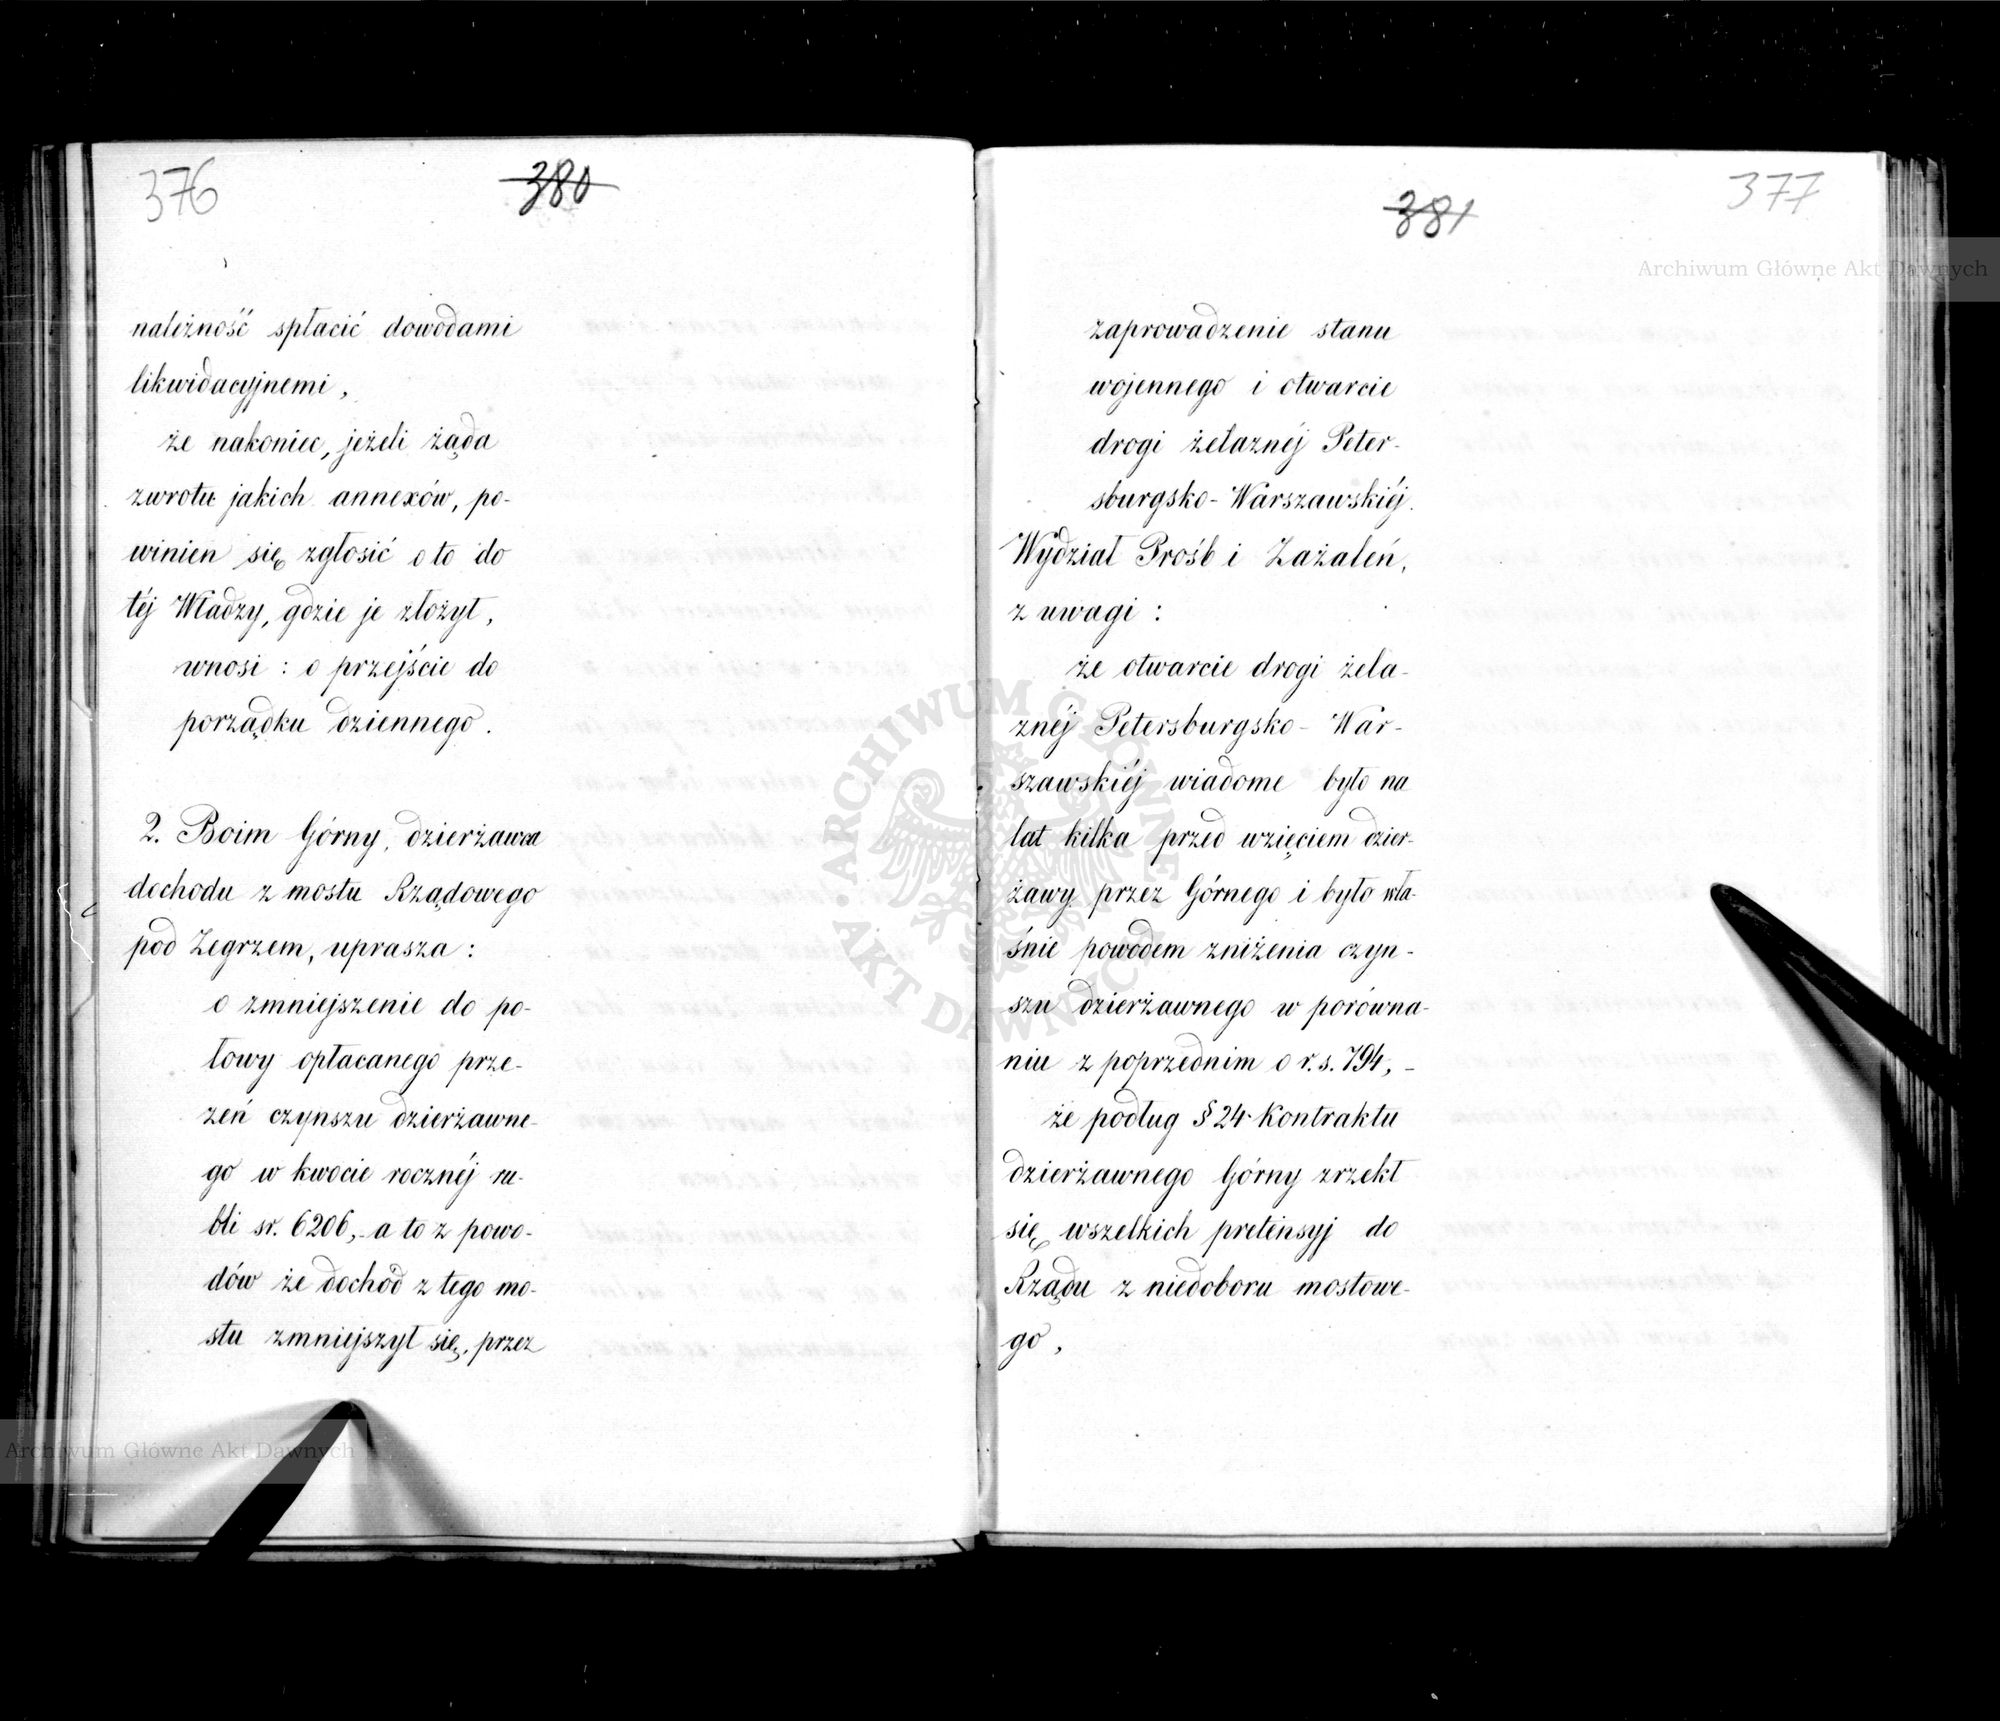 376
380
należność spłacić dowodami
likwidacyjnemi,
że nakoniec, jeżeli żąda
zwrotu jakich annexów, po-
winien się zgłosić o to do
téj Władzy, gdzie je złożył,
wnosi : o przejście do
porządku dziennego.
2. Boim Górny, dzierżawca
dochodu z mostu Rządowego
pod Zegrzem, uprasza :
o zmniejszenie do po-
łowy opłacanego prze-
zeń czynszu dzierżawne-
go w kwocie rocznéj ru-
bli sr. 6206,- a to z powo-
dów że dochód z tego mo-
stu zmniejszył się, przez
377
381
zaprowadzenie stanu
wojennego i otwarcie
drogi żelaznéj Peter-
sburgsko-Warszawskiéj.
Wydział Prośb i Zażaleń,
z uwagi :
że otwarcie drogi żela-
znéj Petersburgsko-War-
szawskiéj wiadome było na
lat kilka przed wzięciem dzier-
żawy przez Górnego i było wła-
śnie powodem zniżenia czyn-
szu dzierżawnego w porówna-
niu z poprzednim o r. s. 794, -
że podług § 24 Kontraktu
dzierżawnego Górny zrzekł
się wszelkich pretensyj do
Rządu z niedoboru mostowe-
go,
Archiwum Główne Akt Dawnych
ARCHIWUM GŁÓWNE AKT DAWNYCH
Archiwum Główne Akt Dawnych